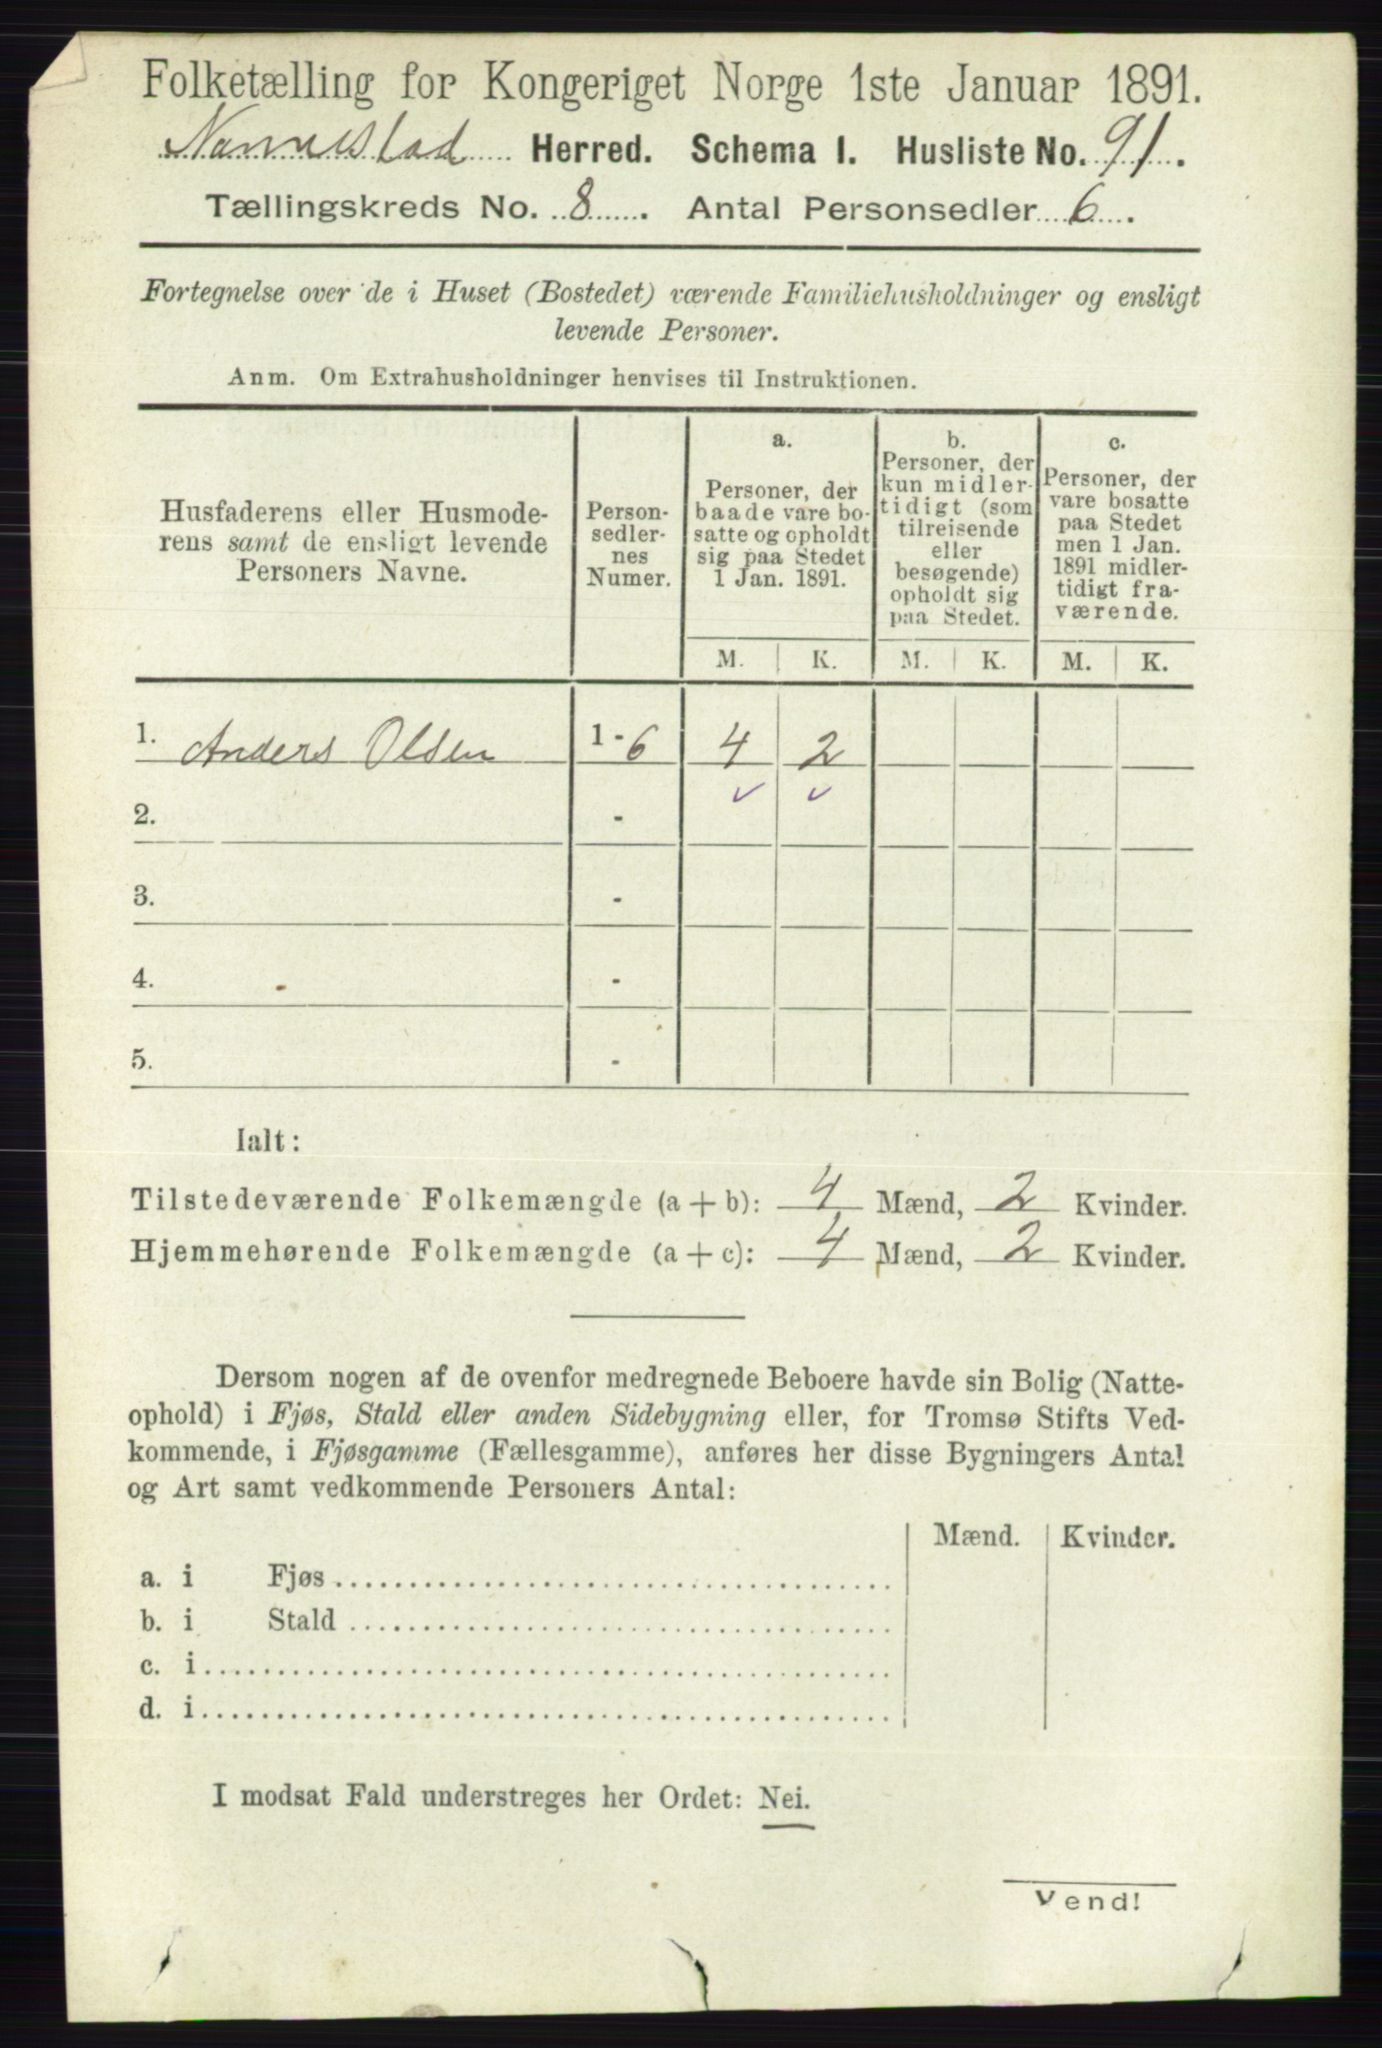 Folketælling for Kongeriget Norge 1ste Januar 1891.
Nannestad Herred. Schema I. Husliste No. 91.
Tællingskreds No. 8. Antal Personsedler 6.
Fortegnelse over de i Huset (Bostedet) værende Familiehusholdninger og ensligt
levende Personer.
Anm. Om Extrahusholdninger henvises til Instruktionen.
Husfaderens eller Husmode-
rens samt de ensligt levende
Personers Navne.
Person-
sedler-
nes
Numer.
a.
Personer, der
baade vare bo-
satte og opholdt
sig paa Stedet
1 Jan. 1891.
b.
Personer, der
kun midler-
tidigt (som
tilreisende
eller
besøgende)
opholdt sig
paa Stedet.
c.
Personer, der
vare bosatte
paa Stedet
men 1 Jan.
1891 midler-
tidigt fra-
værende.
M. K. M. K. M. K.
1. Anders Olsen 1-6 4 2
✓ ✓
2. -
3. -
4. -
5. -
Ialt:
Tilstedeværende Folkemængde (a + b): 4 Mænd, 2 Kvinder.
Hjemmehørende Folkemængde (a + c): 4 Mænd, 2 Kvinder.
Dersom nogen af de ovenfor medregnede Beboere havde sin Bolig (Natte-
ophold) i Fjøs, Stald eller anden Sidebygning eller, for Tromsø Stifts Ved-
kommende, i Fjøsgamme (Fællesgamme), anføres her disse Bygningers Antal
og Art samt vedkommende Personers Antal:
Mænd. Kvinder.
a. i Fjøs
b. i Stald
c. i
d. i
I modsat Fald understreges her Ordet: Nei.
Vend!